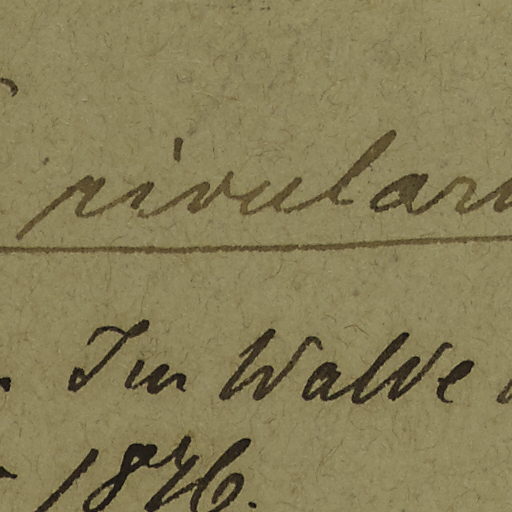 rivulari
Im Walde
1876.